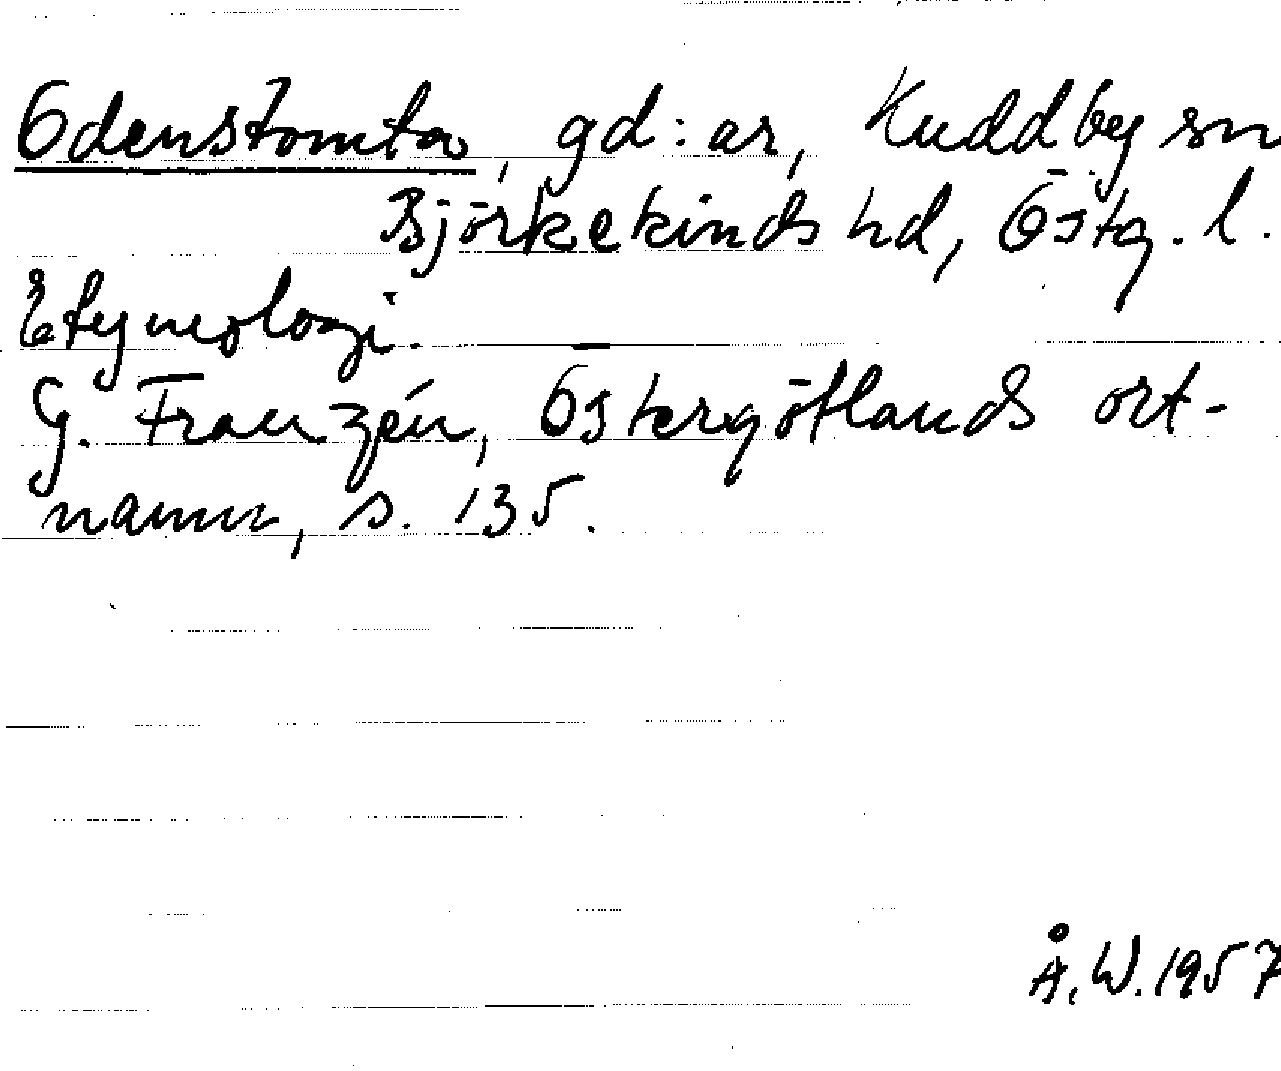 Odenstomta, gd:ar, Kuddby sn
Björkekinds hd, Östg. l.
Etymologi.
G. Franzén, Östergötlands ort-
namn, s. 135.
Å.W. 1957